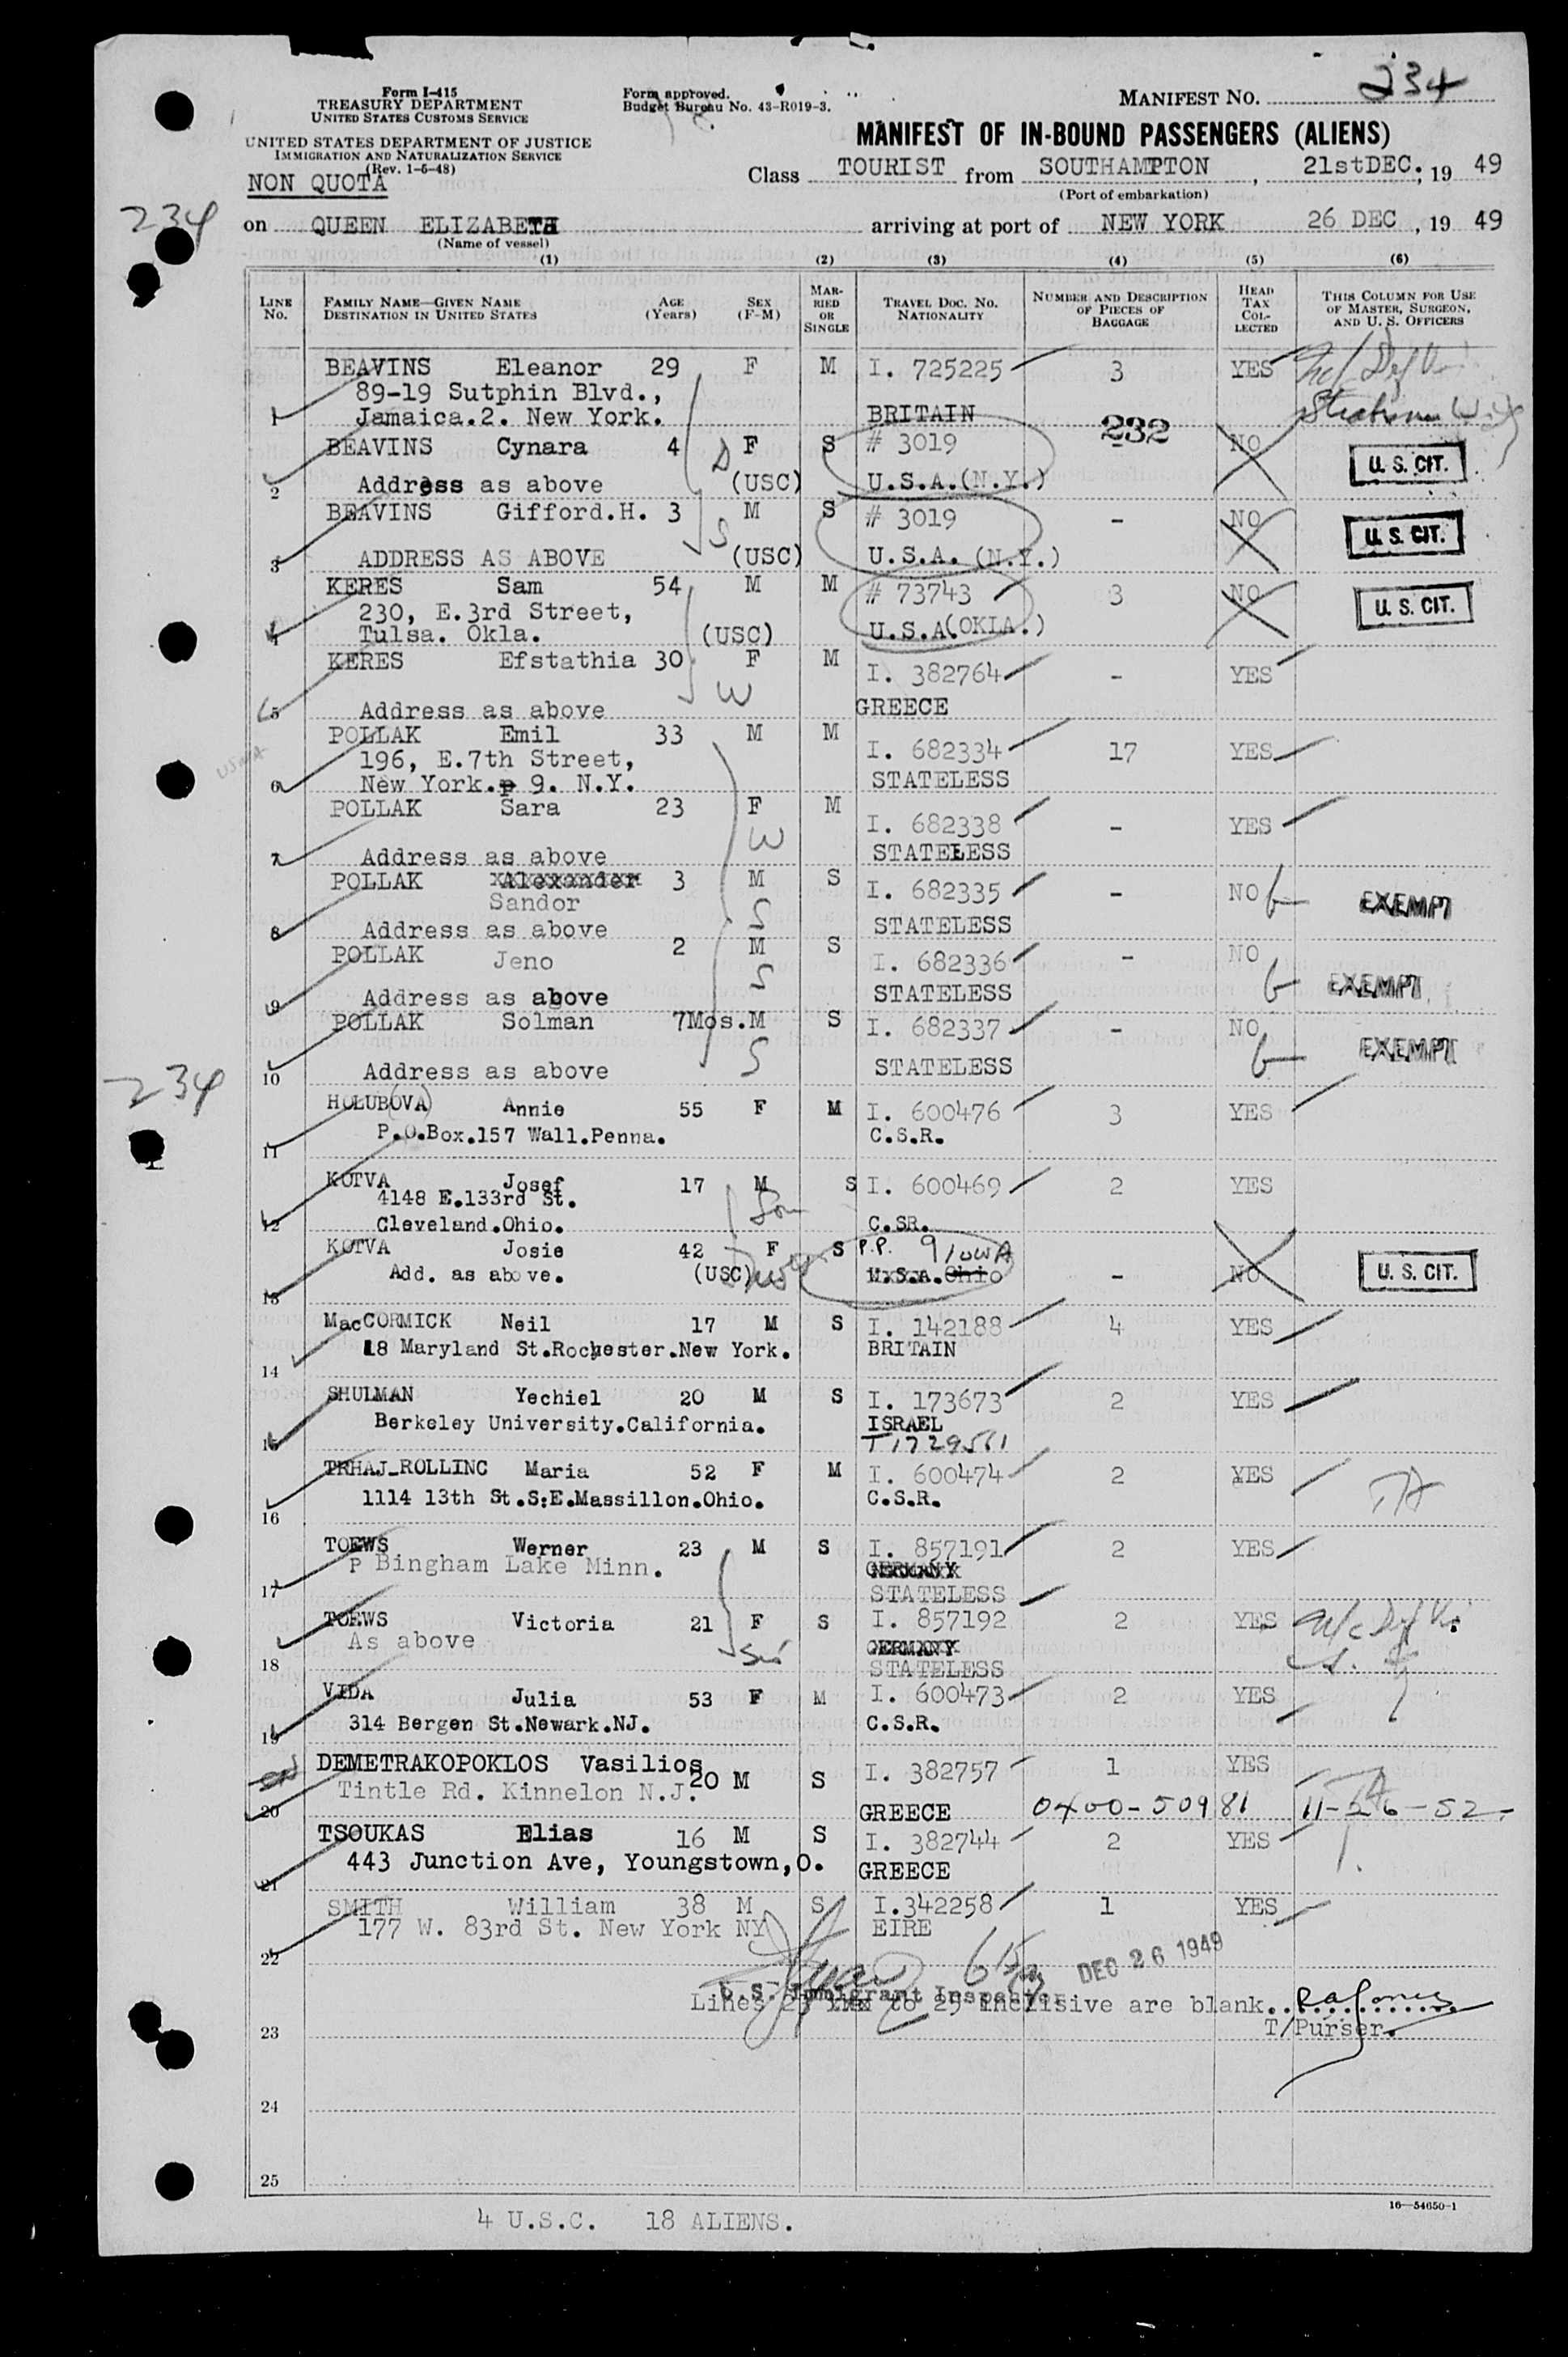 Form I-415
TREASURY DEPARTMENT
UNITED STATES CUSTOMS SERVICE
UNITED STATES DEPARTMENT OF JUSTICE
IMMIGRATION AND NATURALIZATION SERVICE
(Rev. 1-5-48)
NON QUOTA
Form approved.
Budget Bureau No. 43-R019-3.
MANIFEST NO. 234
MANIFEST OF IN-BOUND PASSENGERS (ALIENS)
Class TOURIST from SOUTHAMPTON, 21stDEC., 19 49
(Port of embarkation)
234
on QUEEN ELIZABETH arriving at port of NEW YORK 26 DEC, 19 49
(Name of vessel)
(1) (2) (3) (4) (5) (6)
LINE NO.
FAMILY NAME—GIVEN NAME
DESTINATION IN UNITED STATES
AGE (Years)
SEX (F-M)
MARRIED OR SINGLE
TRAVEL DOC. NO. NATIONALITY
NUMBER AND DESCRIPTION OF PIECES OF BAGGAGE
HEAD TAX COLLECTED
THIS COLUMN FOR USE OF MASTER, SURGEON, AND U. S. OFFICERS
BEAVINS Eleanor 29 F M I. 725225 3 YES
89-19 Sutphin Blvd.,
1 Jamaica.2. New York. BRITAIN
232
BEAVINS Cynara 4 F S # 3019 NO U. S. CIT.
2 Address as above (USC) U.S.A.(N.Y.)
BEAVINS Gifford.H. 3 M S # 3019 - NO U. S. CIT.
3 ADDRESS AS ABOVE (USC) U.S.A. (N.Y.)
KERES Sam 54 M M # 73743 3 NO U. S. CIT.
230, E.3rd Street,
4 Tulsa. Okla. (USC) U.S.A(OKLA.)
KERES Efstathia 30 F M I. 382764 - YES
W
5 Address as above GREECE
POLLAK Emil 33 M M I. 682334 17 YES
196, E.7th Street,
6 New York. 9. N.Y. STATELESS
POLLAK Sara 23 F M I. 682338 - YES
W
7 Address as above STATELESS
POLLAK Alexander 3 M S I. 682335 - NO EXEMPT
Sandor S
8 Address as above STATELESS
POLLAK Jeno 2 M S I. 682336 - NO EXEMPT
S
9 Address as above STATELESS
POLLAK Solman 7Mos. M S I. 682337 - NO EXEMPT
S
10 Address as above STATELESS
234
HOLUB(OVA) Annie 55 F M I. 600476 3 YES
P.O.Box.157 Wall.Penna. C.S.R.
11
KOTVA Josef 17 M S I. 600469 2 YES
4148 E.133rd St. Son
12 Cleveland.Ohio. C.SR.
KOTVA Josie 42 F S P.P. 9 IOWA NO U. S. CIT.
Add. as above. (USC) U.S.A. Ohio -
13
MacCORMICK Neil 17 M S I. 142188 4 YES
18 Maryland St.Rochester.New York. BRITAIN
14
SHULMAN Yechiel 20 M S I. 173673 2 YES
Berkeley University.California. ISRAEL
15 T1729561
TRHAJ-ROLLINC Maria 52 F M I. 600474 2 YES
1114 13th St.S.E.Massillon.Ohio. C.S.R.
16
TOEWS Werner 23 M S I. 857191 2 YES
P Bingham Lake Minn. GERMANY
17 STATELESS
TOEWS Victoria 21 F S I. 857192 2 YES
As above GERMANY
18 STATELESS
VIDA Julia 53 F M I. 600473 2 YES
314 Bergen St.Newark.NJ. C.S.R.
19
DEMETRAKOPOKLOS Vasilios 20 M S I. 382757 1 YES
Tintle Rd. Kinnelon N.J.
20 GREECE 0400-50981 11-26-52
TSOUKAS Elias 16 M S I. 382744 2 YES
443 Junction Ave, Youngstown,O. GREECE
21
SMITH William 38 M S I.342258 1 YES
177 W. 83rd St. New York NY EIRE
22
DEC 26 1949
U.S. Immigrant Inspector
Lines 23 to 25 inclusive are blank.
T/Purser.
23
24
25
16—54650-1
4 U.S.C. 18 ALIENS.